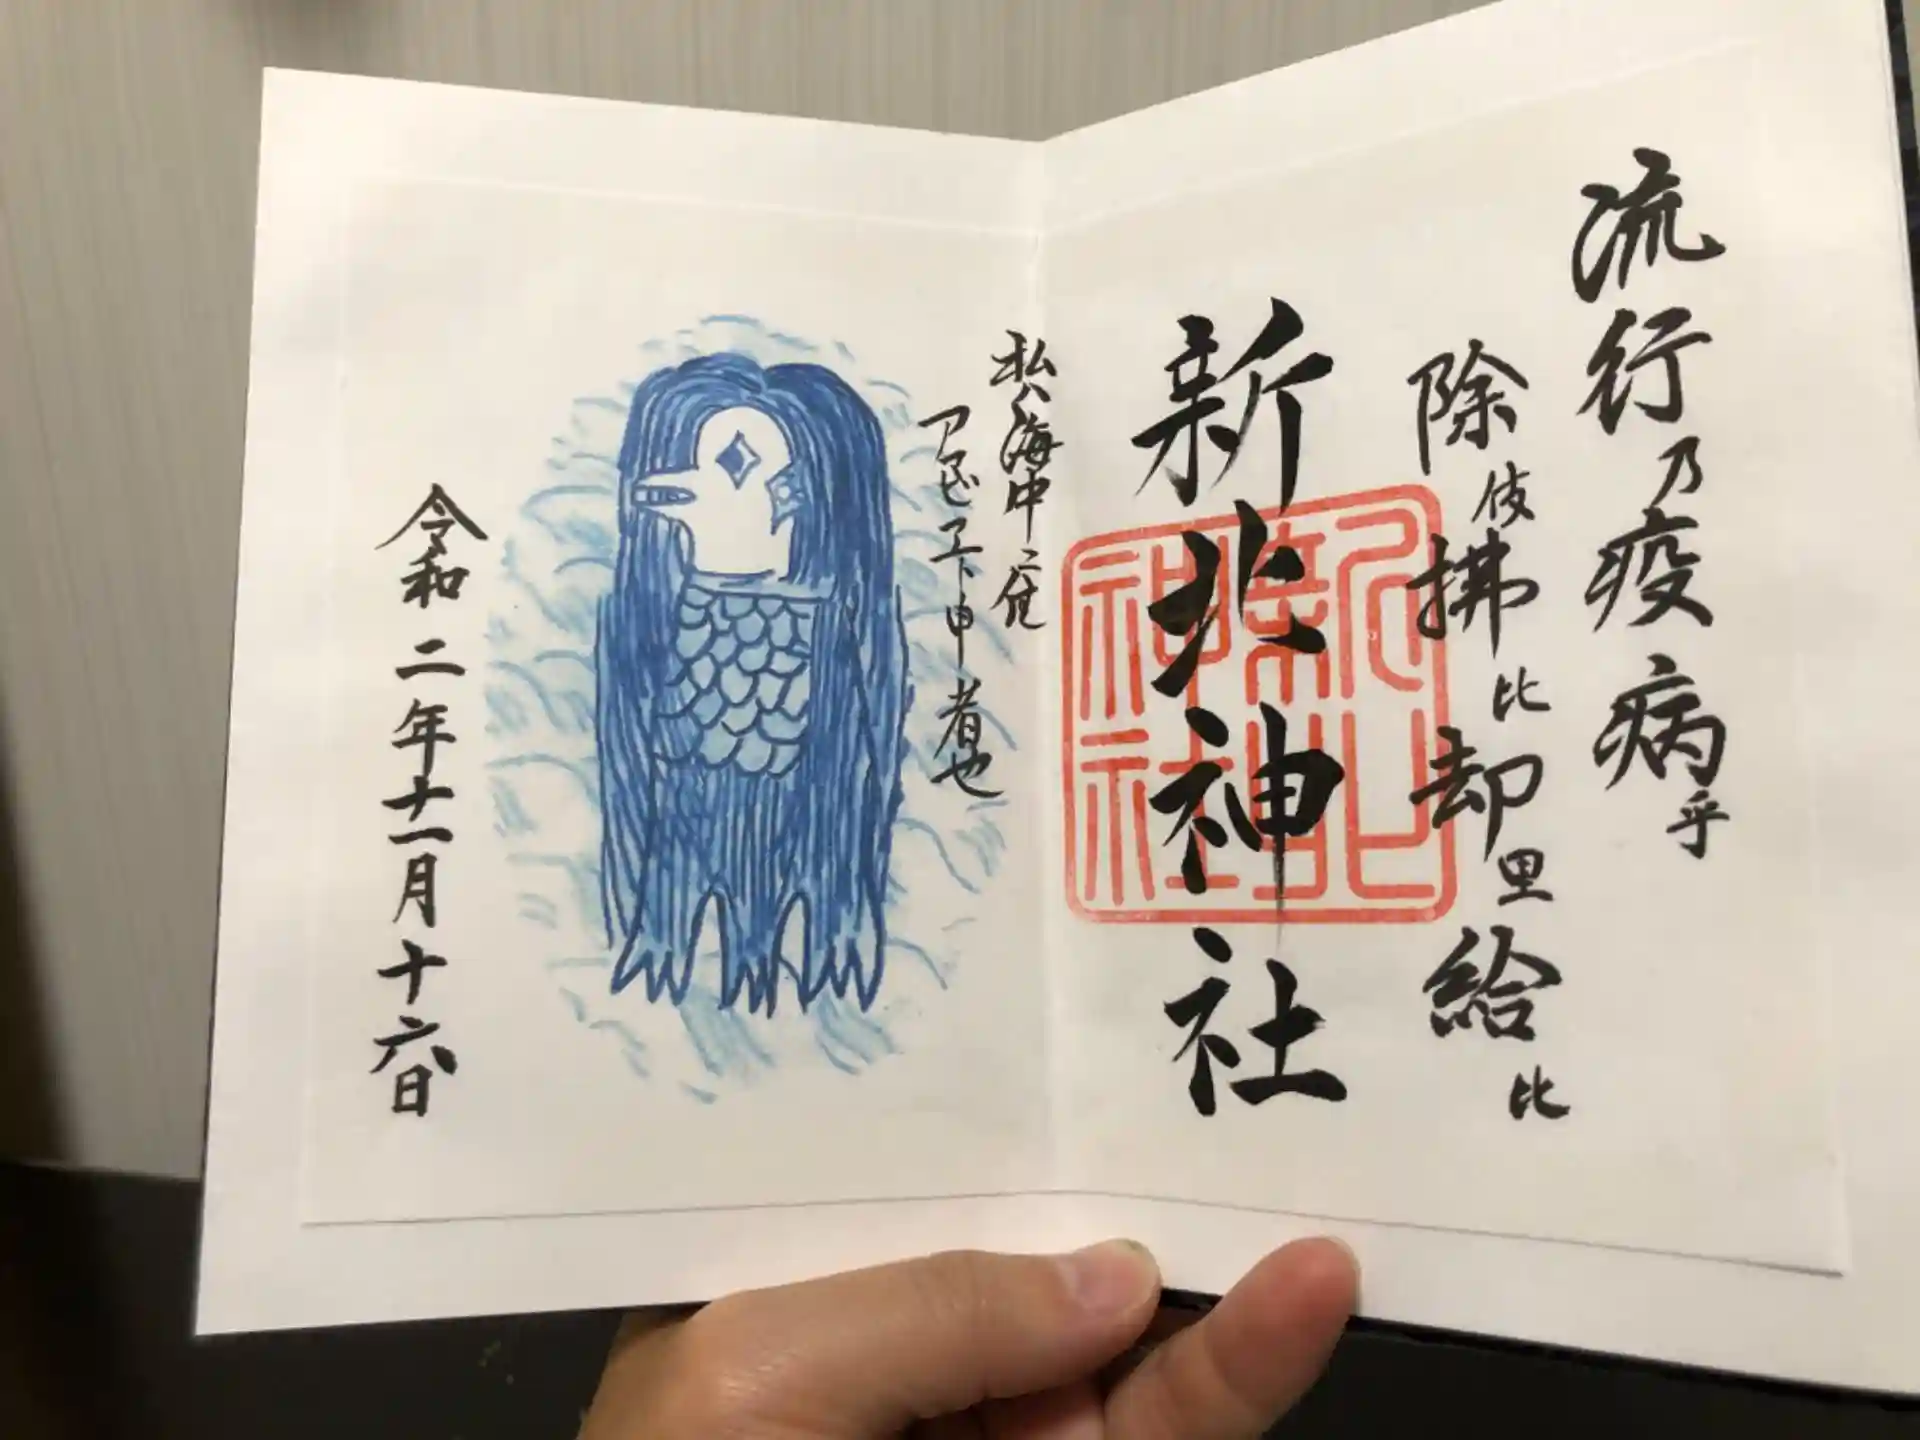 流行乃疫病乎
除伎拂比却里給比
新北神社
新北神社
私ハ海中ニ住
アマビヱト申者也
令和二年十一月十六日